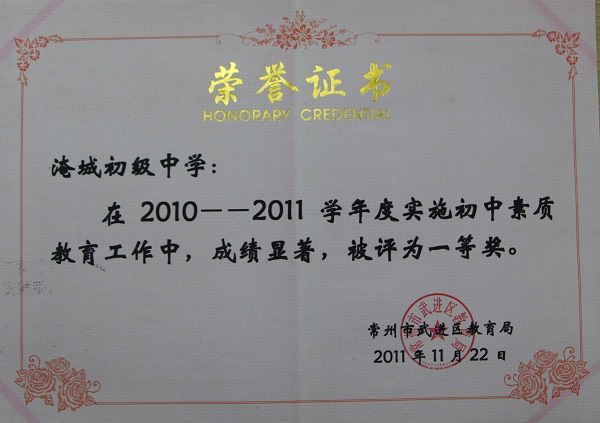 荣誉证书
HONORARY CREDENTIAL
淹城初级中学：
在 2010——2011 学年度实施初中素质
教育工作中，成绩显著，被评为一等奖。
常州市武进区教育局
2011 年 11 月 22 日
常州市武进区教育局